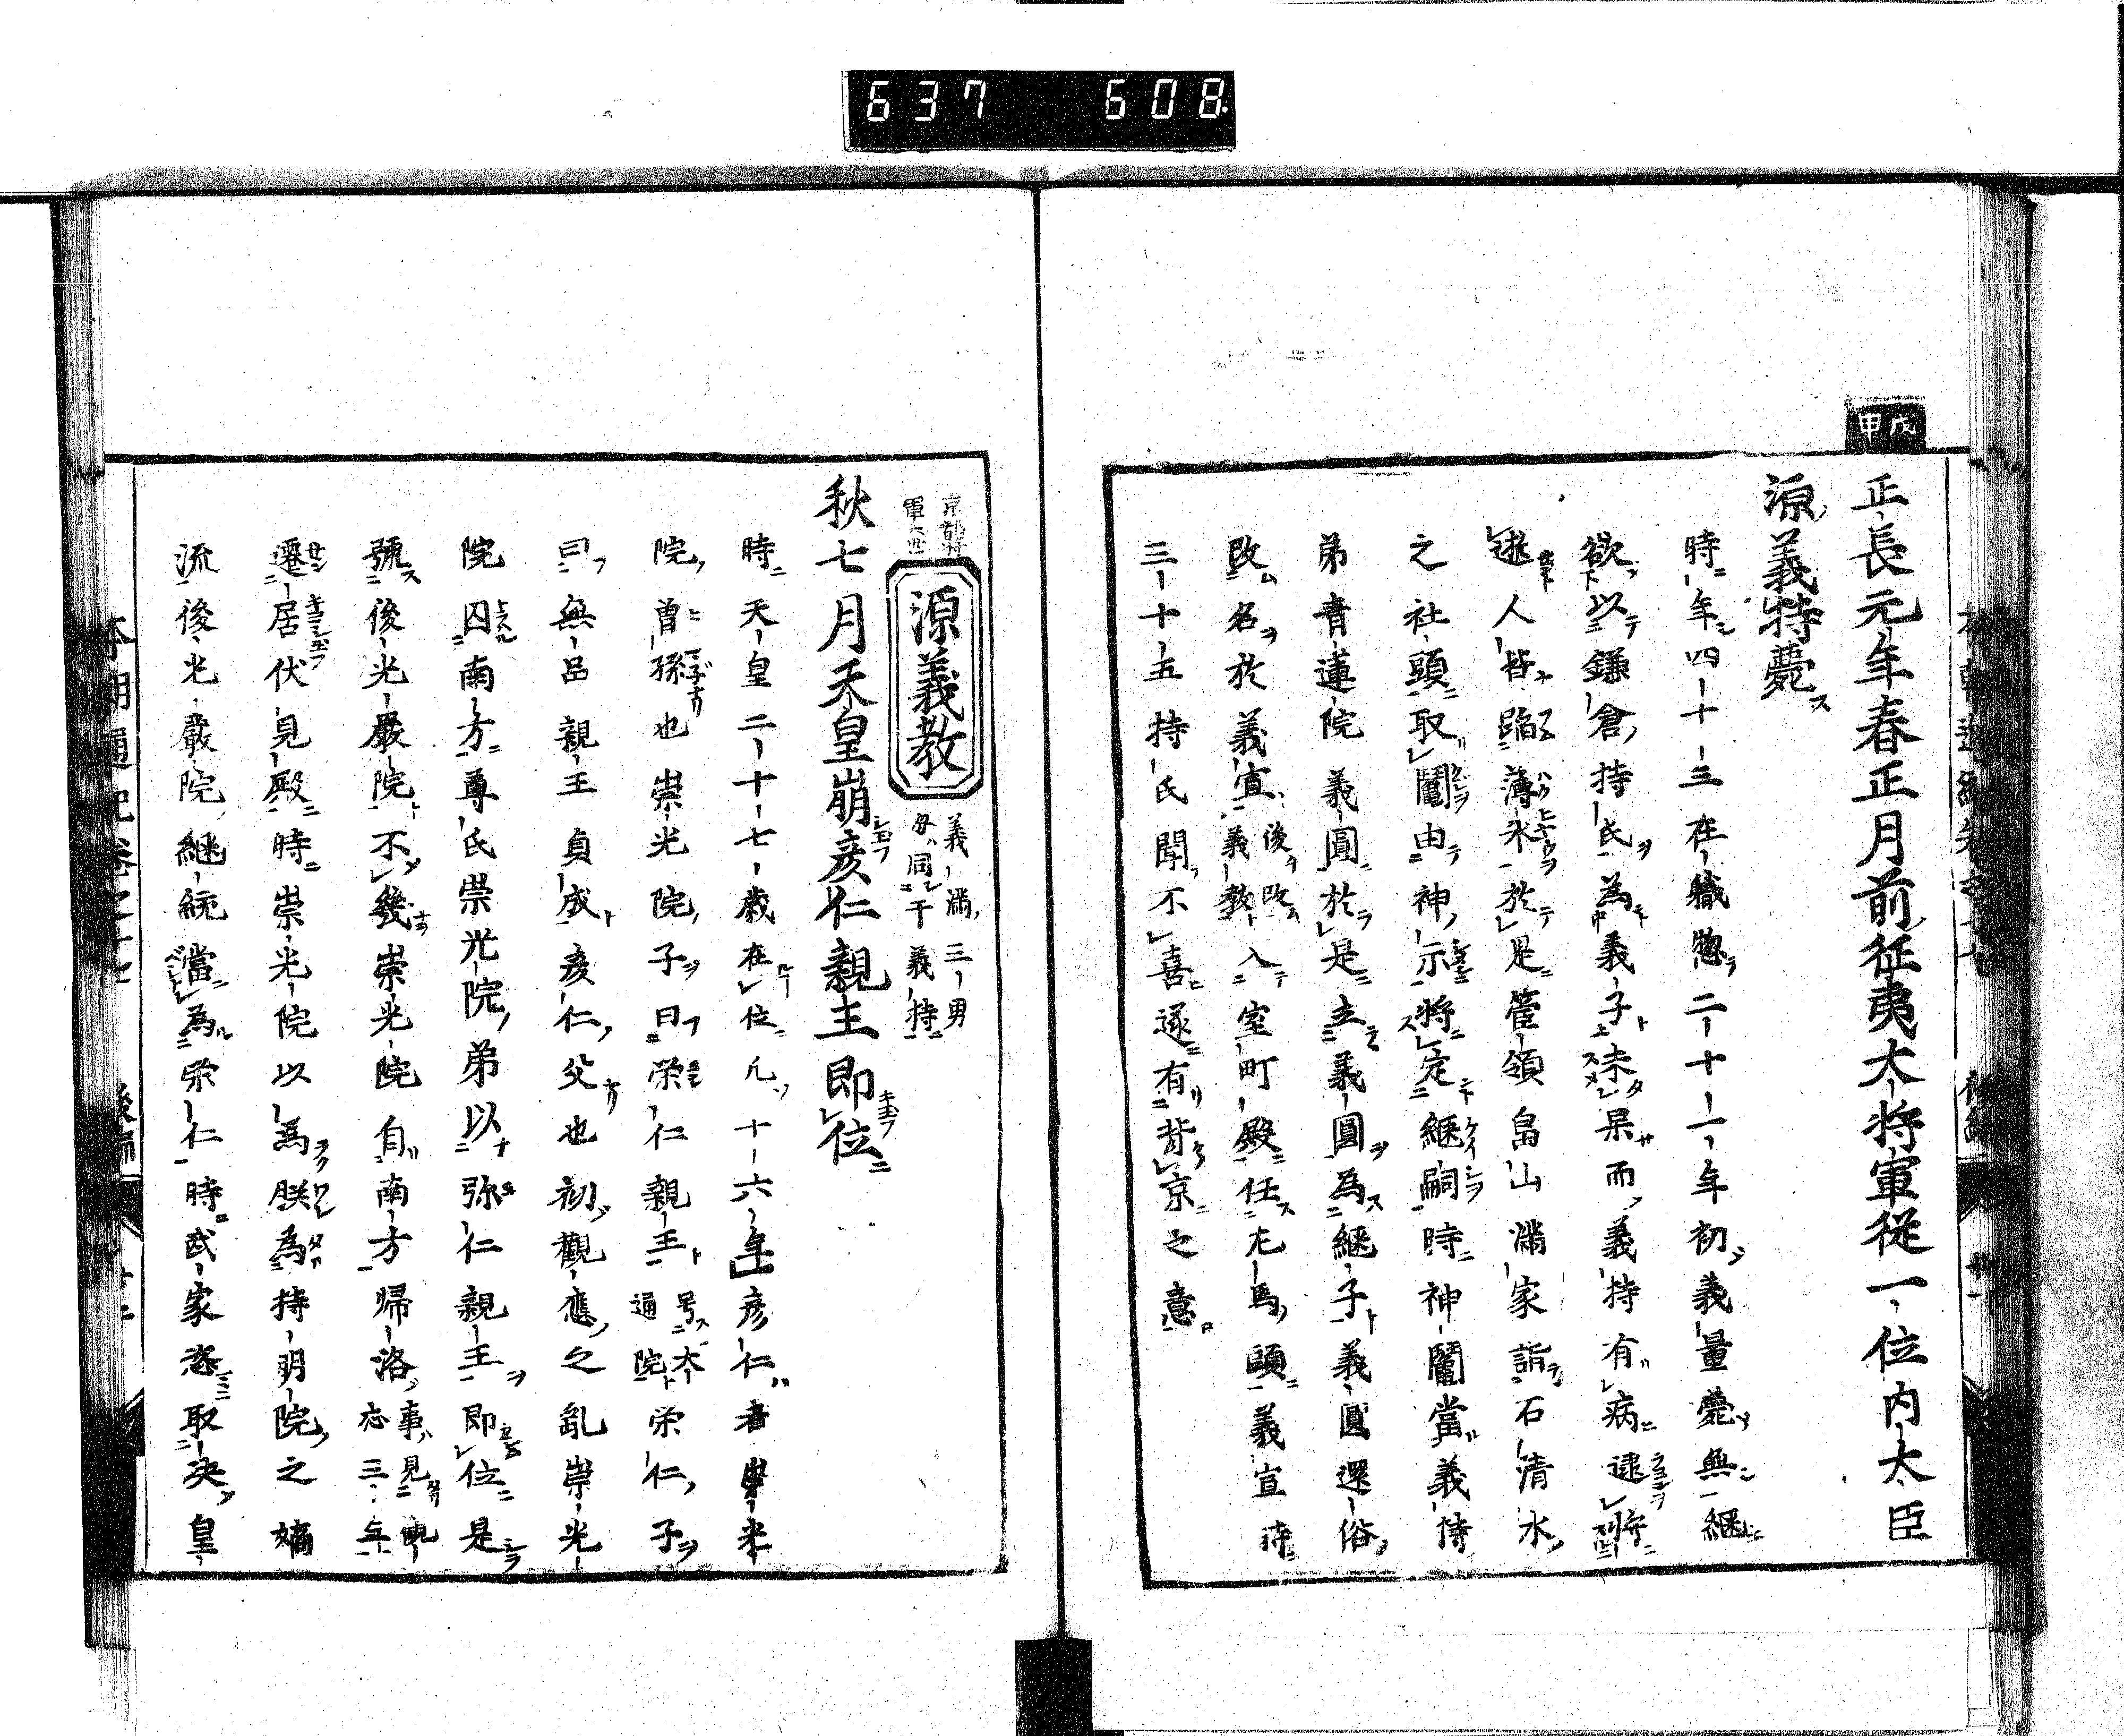 637 608
戊申
正長元年春正月前征夷大将軍従一位内大臣
源義持薨
時年四十三在職惣二十一年初義量薨無継
欲以鎌倉持氏為義子未果而義持有病逮将
逝人皆蹈薄氷於是管領畠山満家詣石清水
之社頭取鬮由神示将定継嗣時神鬮當義持
弟青蓮院義圓於是立義圓為継子義圓還俗
改名於義宣後改義教入室町殿任左馬頭義宣時
三十五持氏聞不喜遂有背京之意
京都将軍六世
源義教
義満三男
母同于義持
秋七月天皇崩彦仁親王即位
時天皇二十七歳在位凡十六年彦仁者崇光
院曽孫也崇光院子曰栄仁親王号大通院栄仁子
曰無品親王貞成彦仁父也初觀應之乱崇光
院囚南方尊氏崇光院弟以弥仁親王即位是
號後光嚴院不幾崇光院自南方帰洛事見観応三年
遷居伏見殿時崇光院以為朕為持明院之嫡
流後光嚴院継統當為栄仁時武家恣取决皇
本朝通紀巻之十七 後編